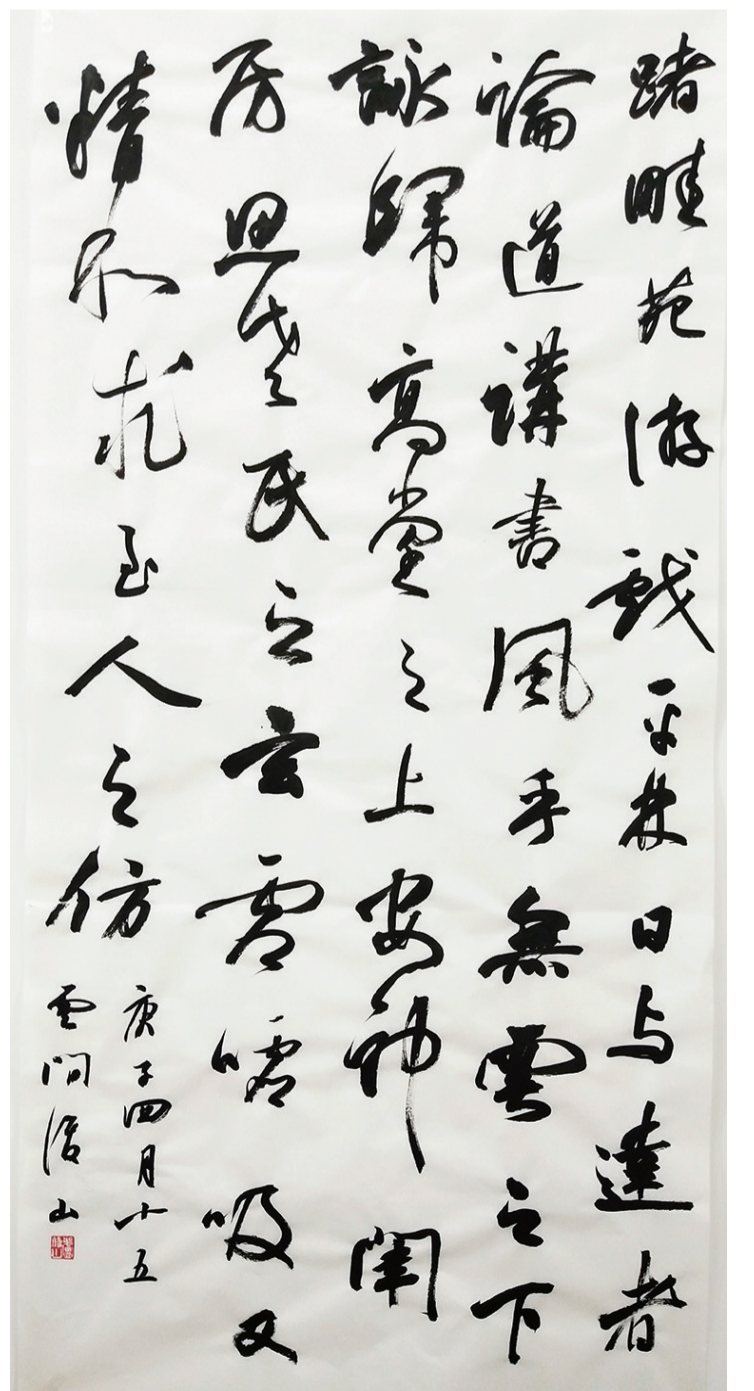 躇畦苑游戲平林日与達者
論道講書風乎無雲之下
詠歸高堂之上安神閨
房思老氏之玄虚嘘吸又
精和求至人之仿
庚子四月十五
雲間山